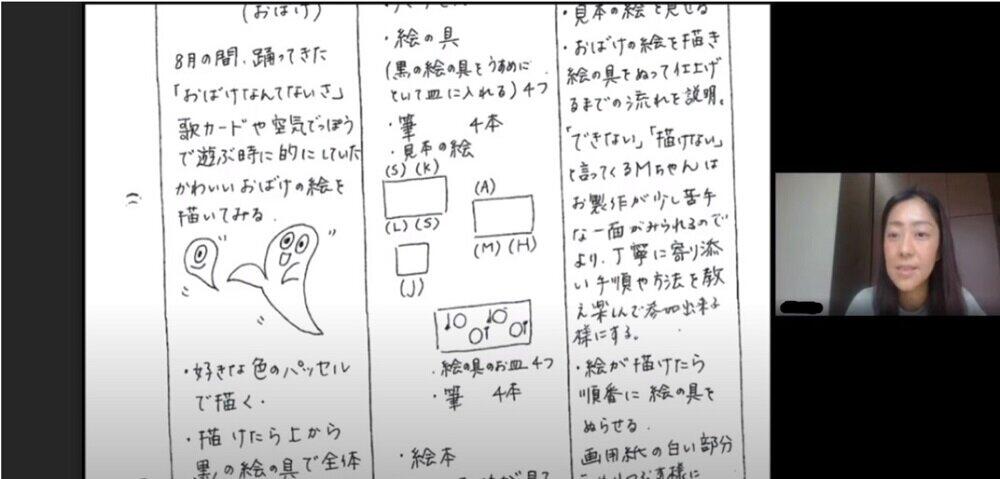 (おばけ)
8月の間、踊ってきた
「おばけなんてないさ」
歌カードや空気でっぽう
で遊ぶ時に的にしていた
かわいいおばけの絵を
描いてみる.
・好きな色のパッセル
で描く.
・描けたら上から
黒の絵の具で全体
・絵の具
(黒の絵の具をうすめに
といて皿に入れる) 4つ
・筆 4本
・見本の絵
(S) (K)
(A)
(L) (S)
(M) (H)
(J)
・絵の具のお皿 4つ
・筆 4本
・絵本
・見本の絵を見せる
・おばけの絵を描き
絵の具をぬって仕上げ
るまでの流れを説明。
「できない」「描けない」
と言ってくるMちゃんは
お製作が少し苦手
な一面がみられるので
より、丁寧に寄り添
い手順や方法を教
え楽しんで参加出来る
様にする。
・絵が描けたら
順番に絵の具を
ぬらせる.
画用紙の白い部分